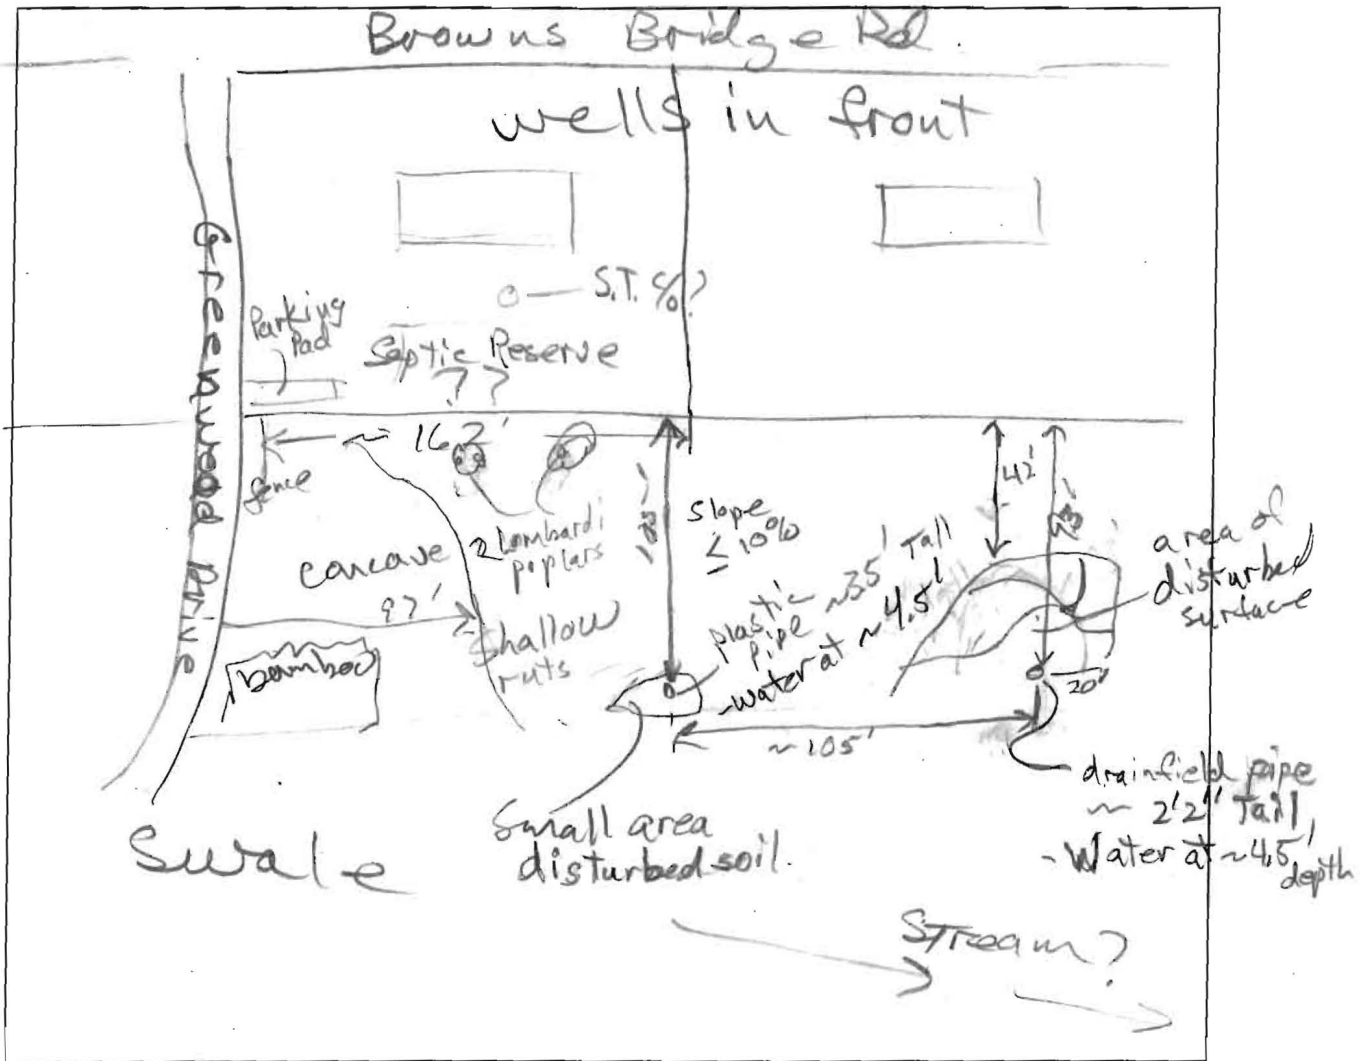 Browns Bridge Rd.
wells in front
Greenwood Drive
S.T. c/o?
Parking
Pad
Septic Reserve
? ?
~ 162'
fence
42'
slope
≤ 10%
2 Lombardi
poplars
concave
97'
shallow
ruts
bamboo
plastic
pipe
Tall
-water at ~4.5'
area of
disturbed
surface
20'
~105'
drainfield pipe
~ 2'2" Tall
- Water at ~4.5'
depth
Small area
disturbed soil.
Swale
Stream?